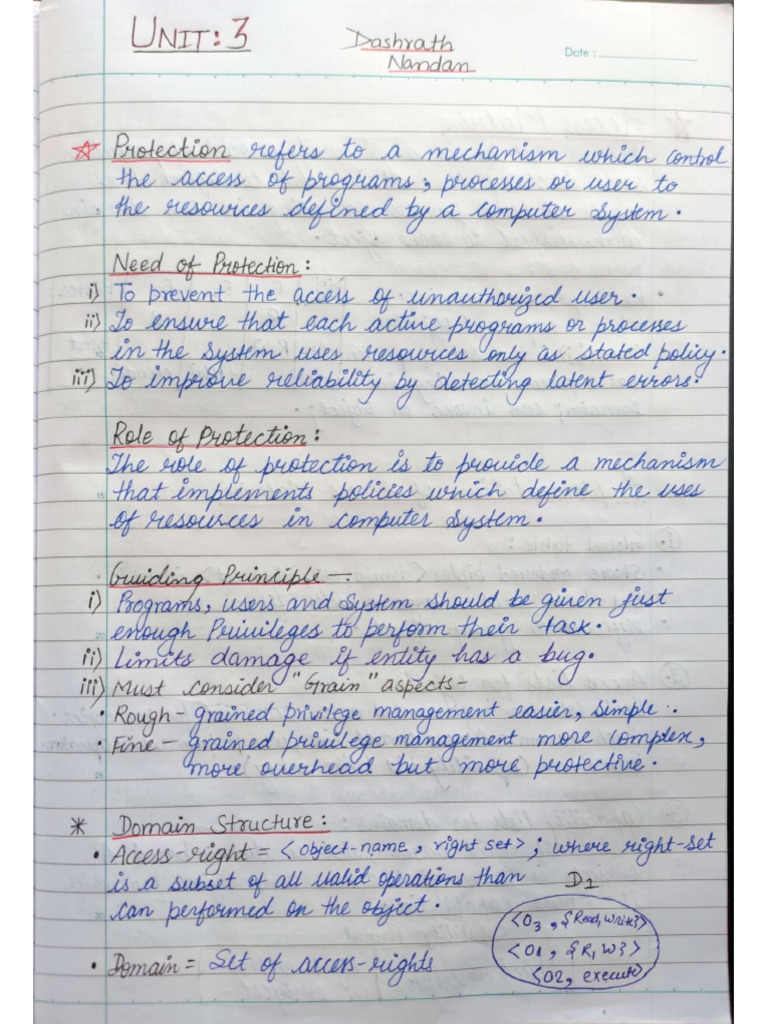 UNIT: 3
Dashrath
Nandan
Date :
Protection refers to a mechanism which control
the access of programs, processes or user to
the resources defined by a computer system.
Need of Protection:
i) To prevent the access of unauthorized user.
ii) To ensure that each active programs or processes
in the system uses resources only as stated policy.
iii) To improve reliability by detecting latent errors.
Role of Protection:
The role of protection is to provide a mechanism
that implements policies which define the uses
of resources in computer system.
Guiding Principle -
i) Programs, users and system should be given just
enough Privileges to perform their task.
ii) Limits damage if entity has a bug.
iii) Must consider "Grain" aspects-
• Rough-grained privilege management easier, simple.
• Fine- grained privilege management more complex,
more overhead but more protective.
* Domain Structure:
• Access-right = <object-name, right set>; where right-set
is a subset of all valid operations than
can performed on the object.
• Domain = Set of access-rights
D1
<O3, {Read, write}>
<O1, {R, W}>
<O2, execute